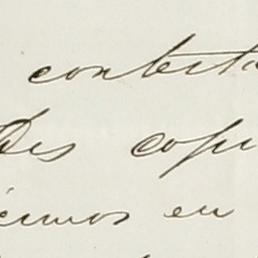 contesta
Des copi
érmos en